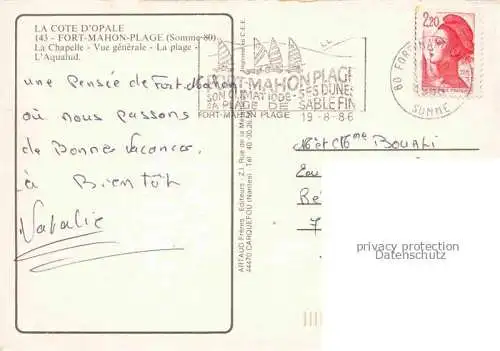 LA COTE D'OPALE
143 - FORT-MAHON-PLAGE (Somme-80)
La Chapelle - Vue générale - La plage -
L'Aqualud.
une pensée de Fort-Mahon
où nous passons
de Bonnes Vacances.
à Bientôt
Natalie
ARTAUD Frères Editeurs - Z.I. Rue de la
44470 CARQUEFOU (Nantes) Tél. 40.
FORT-MAHON PLAGE
SON CLIMAT IODE - SES DUNES
SA PLAGE DE SABLE FIN
FORT-MAHON PLAGE 19-8-86
2,20
80 FORT
SOMME
M et Mme
Ré
7
privacy protection
Datenschutz